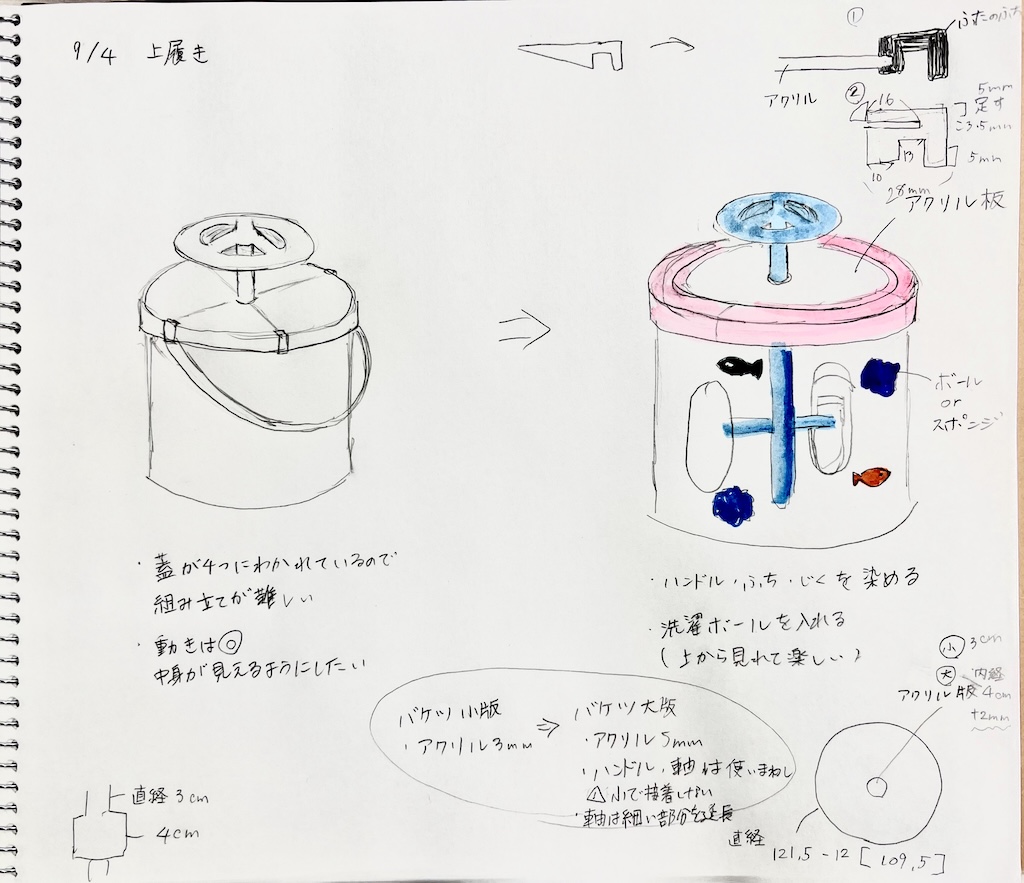 9/4 上履き
①
ふたのふち
アクリル
②
16
5mm
足す
3.5mm
13
5mm
10
28mm
アクリル板
ボール
or
スポンジ
・蓋が4つにわかれているので
組み立てが難しい
・動きは◎
中身が見えるようにしたい
・ハンドル・ふち・じくを染める
・洗濯ボールを入れる
(上から見れて楽しい)
バケツ小版
・アクリル3mm
⇒
バケツ大版
・アクリル5mm
・ハンドル、軸は使いまわし
⚠小で接着しない
・軸は細い部分を延長
小 3cm
大 内経
アクリル版 4cm
+2mm
直経
121,5-12[109,5]
直経3cm
4cm